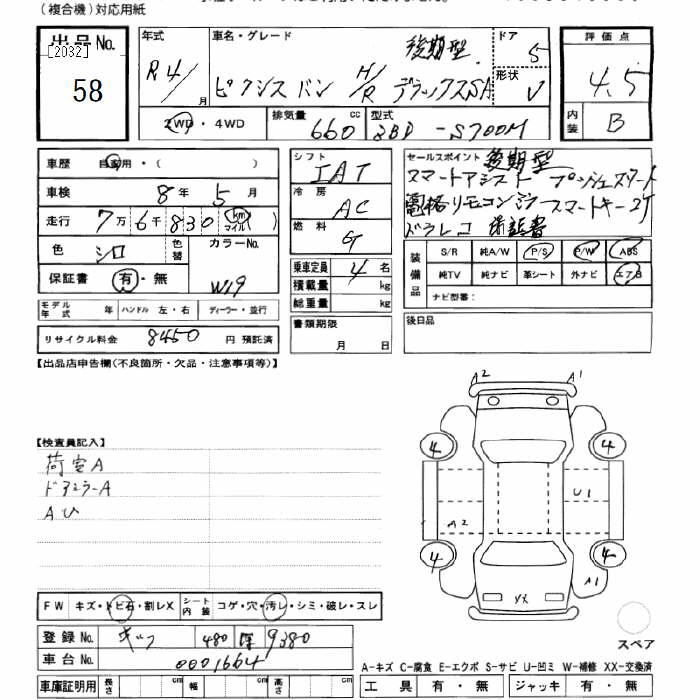 （複合機）対応用紙
出品No.
[2032]
58
年式
R4/月
車名・グレード
後期型
ピクシス バン H/R デラックスSA
ドア
5
形状
V
2WD・4WD
排気量 660 cc
型式 3BD-S700M
評価点
4.5
内装
B
車歴 自家用・（ ）
車検 8年 5月
走行 7万6千830 (km) マイル
色 シロ
色替
カラーNo.
W19
保証書 有・無
モデル年式 年 ハンドル 左・右 ディーラー・並行
リサイクル料金 8450 円 預託済
シフト
IAT
冷房
AC
燃料
G
乗車定員 4 名
積載量 kg
総重量 kg
書類期限
月 日
セールスポイント 後期型
スマートアシスト プッシュスタート
電格リモコンミラ スマートキー2ケ
ドラレコ 保証書
装備品
S/R 純A/W P/S P/W ABS
純TV 純ナビ 革シート 外ナビ エアB
ナビ型番：
後日品
【出品店申告欄(不良箇所・欠品・注意事項等)】
【検査員記入】
荷室A
ドアミラーA
Aひ
A2 A1
4 4
U1
A2
4 4
A1
XX
スペア
FW キズ・トビ石・割レX
シート内装 コゲ・穴・汚レ・シミ・破レ・スレ
登録No. 480 9380
車台No. 0001664
車庫証明用 長さ cm 幅 cm 高さ cm
A-キズ C-腐食 E-エクボ S-サビ U-凹ミ W-補修 XX-交換済
工具 有・無 ジャッキ 有・無